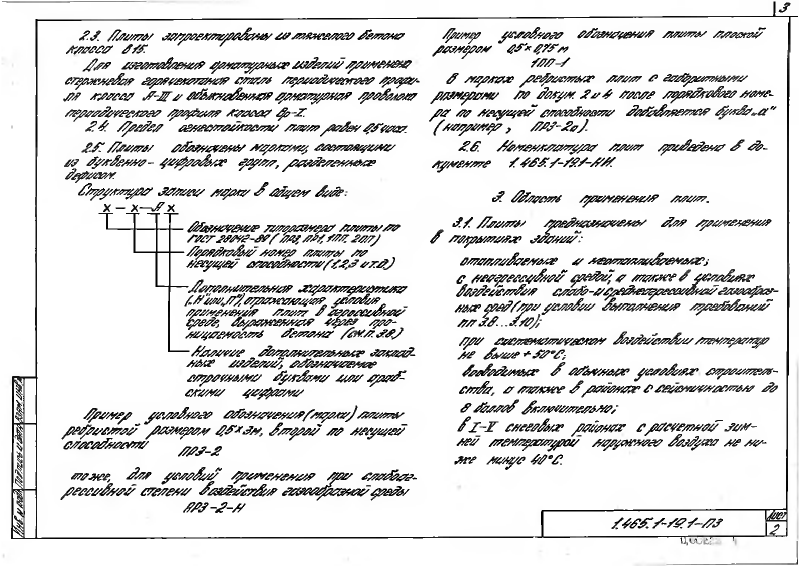 3
2.3. Плиты запроектированы из тяжелого бетона
класса В15.
Для изготовления арматурных изделий применена
стержневая горячекатаная сталь периодического профи-
ля класса А-III и обыкновенная арматурная проволока
периодического профиля класса Вр-I.
2.4. Предел огнестойкости плит равен 0,5 часа.
2.5. Плиты обозначены марками, состоящими
из буквенно-цифровых групп, разделенных
дефисом.
Структура записи марки в общем виде:
Х - Х - А Х
Обозначение типоразмера плиты по
ГОСТ 28042-89 (ПРЗ, ПР1, 1ПП, 2ПП)
Порядковый номер плиты по
несущей способности (1,2,3 и т.д.)
Дополнительная характеристика
(„Н" или „П"), отражающая условия
применения плит в агрессивной
среде, выраженная через про-
ницаемость бетона (см.п. 3.8.)
Наличие дополнительных заклад-
ных изделий, обозначаемое
строчными буквами или араб-
скими цифрами
Пример условного обозначения (марки) плиты
ребристой размером 0,5×3м, второй по несущей
способности
ПРЗ-2
то же, для условий применения при слабоаг-
рессивной степени воздействия газообразной среды
ПРЗ-2-Н
Пример условного обозначения плиты плоской
размером 0,5×0,75 м
1ПП-1
В марках ребристых плит с габаритными
размерами по докум. 2 и 4 после порядкового номе-
ра по несущей способности добавляется буква „а"
(например, ПРЗ-2а).
2.6. Номенклатура плит приведена в до-
кументе 1.465.1-19.1-НИ.
3. Область применения плит.
3.1. Плиты предназначены для применения
в покрытиях зданий:
отапливаемых и неотапливаемых;
с неагрессивной средой, а также в условиях
воздействия слабо-и среднеагрессивной газообраз-
ных сред (при условии выполнения требований
пп 3.8...3.10);
при систематическом воздействии температур
не выше +50°С;
возводимых в обычных условиях строитель-
ства, а также в районах с сейсмичностью до
8 баллов включительно;
в I-V снеговых районах с расчетной зим-
ней температурой наружного воздуха не ни-
же минус 40°С.
Инв.№ подл. Подпись и дата Взам.инв.№
1.465.1-19.1-ПЗ
Лист
2